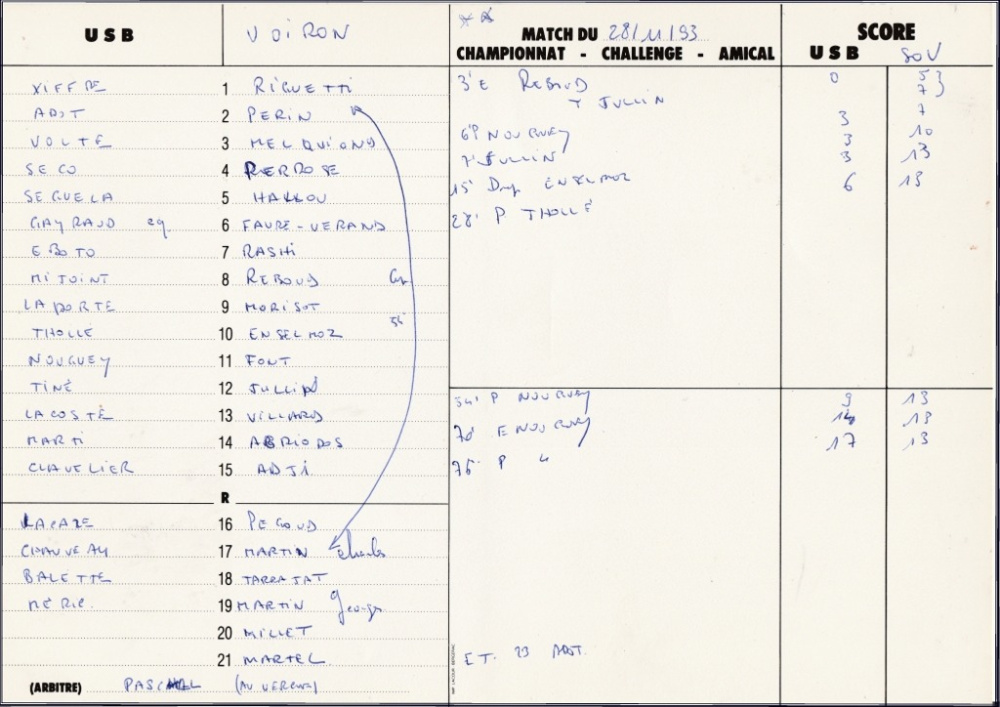 USB VOIRON
MATCH DU 28/11/93
CHAMPIONNAT - CHALLENGE - AMICAL
SCORE
USB SOV
XIFFRE 1 RIGUETTI
ADOT 2 PERIN
VOLTE 3 MELQUIOND
SECO 4 PERROSE
SEGUELA 5 HAKKOU
GAYRAUD 6 FAURE-VERAND
EBOTO 7 RASHI
MIJOINT 8 REBOUD Cap
LAPORTE 9 MORISOT
THOLLE 10 ENSELMOZ
NOUGUEY 11 FONT
TINÉ 12 JULLIN
LACOSTE 13 VILLARD
MARTI 14 ABRIODOS
CLAVELIER 15 ADJI
R
LACAZE 16 PEGOUD
CHAUVEAU 17 MARTIN Charles
BALETTE 18 TARRATAT
MÉRIC 19 MARTIN Georges
20 MILLET
21 MARTEL
(ARBITRE) PASCHAL (AUVERGNE)
3' E REBOUD 0 5
T JULLIN 7
6' P NOUGUEY 3 7
7' JULLIN 3 10
15' Drop ENSELMOZ 3 13
28' P THOLLÉ 6 13
54' P NOUGUEY 9 13
70' E NOUGUEY 14 13
75' P " 17 13
ET. 23 ADOT.